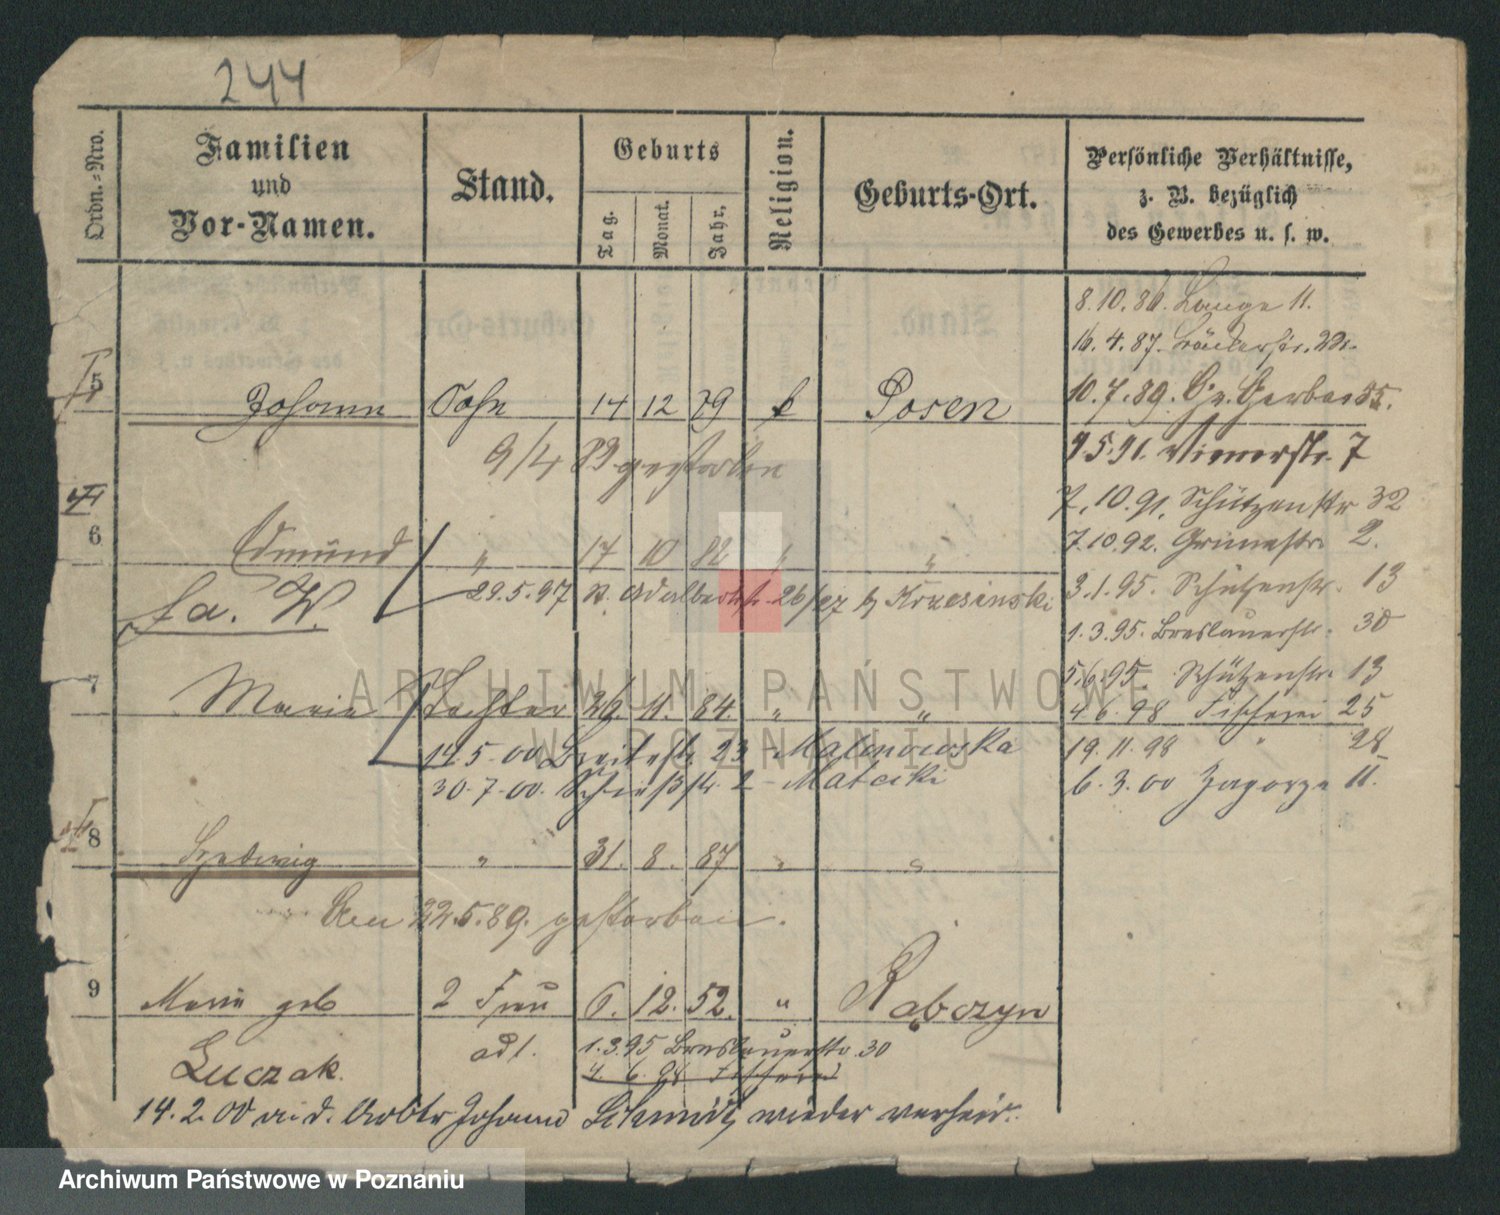 244
Ordn.-Nro.
Familien
und
Vor-Namen.
Stand.
Geburts
Tag.
Monat.
Jahr,
Religion.
Geburts-Ort.
Persönliche Verhältnisse,
z. B. bezüglich
des Gewerbes u. s. w.
8.10.86. Lange 11.
16.4.87. Bäckerstr.
10.7.89. Gr. Gerber 35.
5 Johann Sohn 14 12 79 k Posen
9/4 83 gestorben
9 5.91. Wienerstr. 7
7.10.91. Schützenstr 32
7.10.92. Grünestr. 2.
6 Edmund " 17 10 82 " "
29.5.97 St. Adalbertstr. 26/27 b/ Krzesinski
3.1.95. Schützenstr. 13
1.3.95. Breslauerstr. 30
fa. W.
5.6.95. Schützenstr. 13
4 6. 98 Fischerei 25
7 Marie Tochter 26. 11. 84. " "
14.5.00 Breitestr. 23 - Malinowska
19.11.98 " 28
30.7.00. Schießstr. 2 - Matecki
6.3.00 Zagorze 11.
8 Hedwig " 31. 8. 87 " "
Den 22.5.89. gestorben.
9 Marie geb 2 Frau 6. 12. 52. " Rąbczyn
Luczak. adt.
1.3.95 Breslauerstr. 30
4. 6. 98 Fischerei
14.2.00 m. d. Arbtr Johann Schmidt wieder verheir.
ARCHIWUM PAŃSTWOWE
W POZNANIU
Archiwum Państwowe w Poznaniu